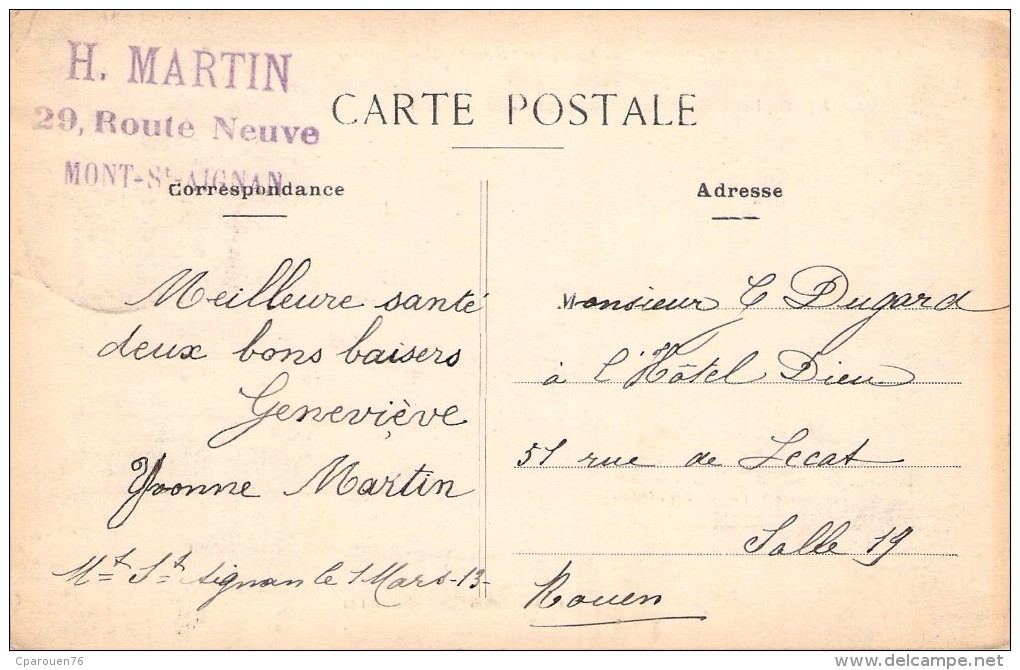 H. MARTIN
29, Route Neuve
MONT-St-AIGNAN
CARTE POSTALE
Correspondance
Meilleure santé
deux bons baisers
Geneviève
Yvonne Martin
Mt St Aignan le 1 Mars-13-
Adresse
Monsieur C Dugard
à l'Hôtel Dieu
51 rue de Lecat
Salle 19
Rouen
Cparouen76
delcampe.net